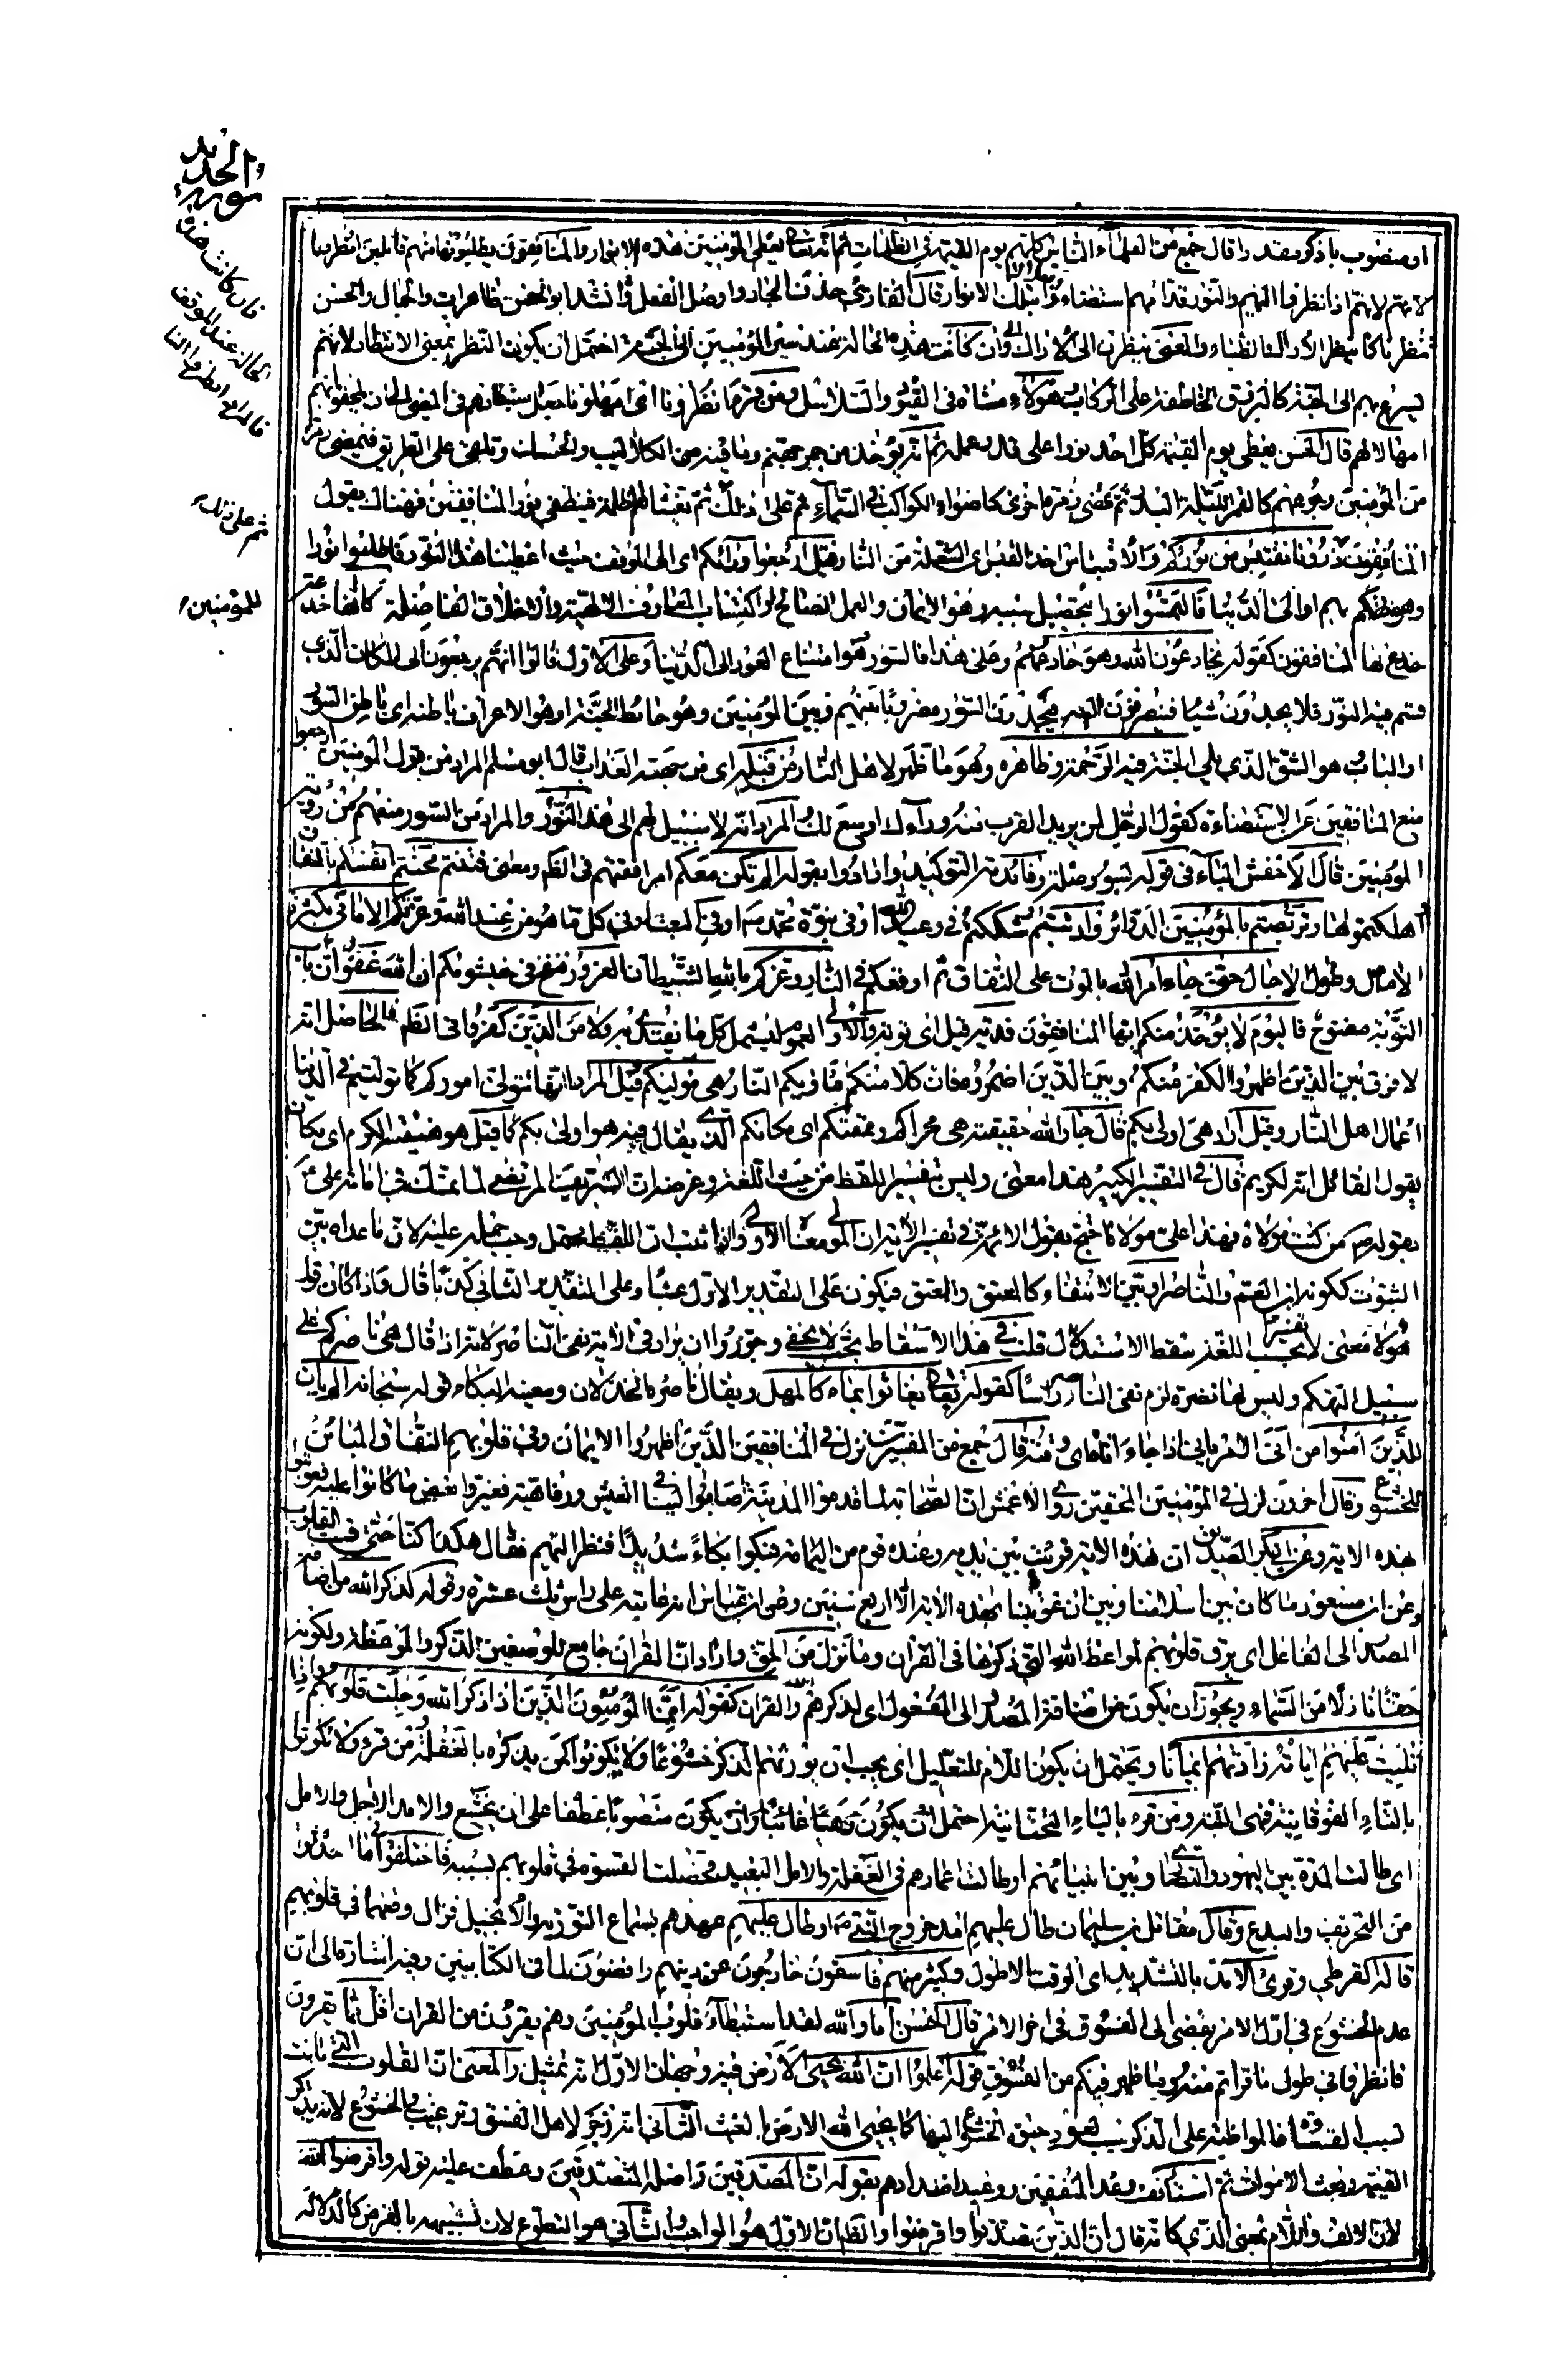 والحديد
سورة
فان كانت هذه
الحالة عند الموقف
فالمراد انظروا الينا
ثم على ذلك
للمؤمنين
او منصوب باذكر مقدرا قال جمع من العلماء الناس كلهم يوم القيمة في الظلمات ثم انه تعالى يعطي المؤمنين هذه الانوار والمنافقون يطلبونها منهم قائلين انظرونا
لانهم اذا نظروا اليهم والنور قدامهم استضاءوا بتلك الانوار قال الفارسي حذف الجار واوصل الفعل وانشد ابو الحسن ظاهرات الجمال والحسن
ينظرن كما ينظر الاراك الظباء والمعنى ينظرن الى الاراك وان كانت هذه الحالة عند سير المؤمنين الى الجنة احتمل ان يكون النظر بمعنى الانتظار لانهم
يسرع بهم الى الجنة كالبرق الخاطف على الركاب وهؤلاء مشاة في القيود والسلاسل ومن قرأ انظرونا اي امهلونا جعل استبطاءهم في المضي الى ان يلحقوا بهم
امهالا لهم قال الحسن يعطى يوم القيمة كل احد نورا على قدر عمله ثم انه يؤخذ من جمر جهنم وما فيه من الكلاليب والحسك وتلقى على الطريق فتمضي زمرة
من المؤمنين وجوههم كالقمر ليلة البدر ثم تمضي زمرة اخرى كاضواء الكواكب في السماء ثم على ذلك ثم تغشاهم ظلمة فيطفى نور المنافقين فهنالك يقول
المنافقون ذرونا نقتبس من نوركم والاقتباس اخذ القبس اي الشعلة من النار وقيل ارجعوا وراءكم اي الى الموقف حيث اعطينا هذا النور فاطلبوا نورا
وهو تهكم بهم او الى الدنيا فالتمسوا نورا بتحصيل سببه وهو الايمان والعمل الصالح او اكتساب المعارف الالهية والاخلاق الفاضلة كانها خدعة
خدع بها المنافقون كقوله يخادعون الله وهو خادعهم وعلى هذا فالسور هو امتناع العود الى الدنيا وعلى الاول قالوا انهم يرجعون الى المكان الذي
قسم فيه النور فلا يجدون شيئا فينصرفون اليهم فيجدون السور مضروبا بينهم وبين المؤمنين وهو حائط الجنة او هو الاعراف باطنه اي باطن السور
او الباب هو الشق الذي يلي الجنة فيه الرحمة وظاهره وهو ما ظهر لاهل النار من قبله اي من جهته العذاب قال ابو مسلم المراد من قول المؤمنين ارجعوا
منع المنافقين عن الاستضاءة كقول الرجل لمن يريد القرب منه وراءك اوسع لك والمراد انه لا سبيل لهم الى هذا النور والمراد من السور منعهم من رؤية
المؤمنين قال الاخفش الباء في قوله بسور صلة وفائدته التوكيد وارادوا بقوله الم نكن معكم مرافقتهم في الظاهر ومعنى فتنتم محنتم انفسكم بالنفاق
اهلكتموها وتربصتم بالمؤمنين الدوائر وارتبتم شككتم في وعيد الله او في نبوة محمد ص او في البعث او في كل ما هو من عند الله وغرتكم الاماني بكثرة
الامال وطول الاجال حتى جاء امر الله بالموت على النفاق ثم اوقعكم في النار وغركم بالله الشيطان الغرور فنفخ في خيشومكم ان الله غفور وان باب
التوبة مفتوح فاليوم لا يؤخذ منكم ايها المنافقون فدية قيل اي توبة والاولى العموم ليشمل كل ما يفتدى به ولا من الذين كفروا في الظاهر فالحاصل انه
لا فرق بين الذين اظهروا الكفر منكم وبين الذين اضمروه فان كلا منكم مأويكم النار هي موليكم قيل المراد انها تتولى اموركم كما توليتم في الدنيا
اعمال اهل النار وقيل اراد هي اولى بكم قال جار الله حقيقته هي محراكم ومقمنكم اي مكانكم الذي يقال فيه هو اولى بكم كما قيل هو مئنة للكرم اي مكان
يقول القائل انه لكريم قال في التفسير الكبير هذا معنى وليس تفسير اللفظ من حيث اللغة وغرضه ان الشريف المرتضى لما تمسك في امامة علي ع
بقوله ص من كنت مولاه فهذا علي مولاه احتج بقول الائمة في تفسير الاية ان المولى معناه الاولى واذا ثبت ان اللفظ محتمل وجب حمله عليه لان ما عداه بين
الثبوت ككونه ابن العم والناصر او بين الانتفاء كالمعتق والعتق فيكون على التقدير الاول عبثا وعلى التقدير الثاني كذبا قال واذا كان قول
هؤلاء معنى لا تفسيرا بحسب اللغة سقط الاستدلال قلت في هذا الاسقاط بحث لا يخفى وجوزوا ان يراد في الاية نفي الناصر لانه اذا قال هي ناصركم على
سبيل التهكم وليس لها نصرة لزم نفي الناصر راسا كقوله تعالى يغاثوا بماء كالمهل ويقال ناصره الخذلان ومعينه البكاء قوله سبحانه الم يأن
للذين امنوا من انى الامر ياني اذا جاء اناه اي وقته قال جمع من المفسرين نزل في المنافقين الذين اظهروا الايمان وفي قلوبهم النفاق المباين
للخشوع وقال اخرون نزل في المؤمنين المحقين روى الاعمش ان الصحابة لما قدموا المدينة اصابوا لينا في العيش ورفاهية ففتروا بعض ما كانوا عليه فعوتبوا
بهذه الاية وعن ابي بكر الصديق ان هذه الاية قرئت بين يديه وعنده قوم من اليمامة فبكوا بكاء شديدا فنظر اليهم فقال هكذا كنا حتى قست القلوب
وعن ابن مسعود ما كان بين اسلامنا وبين ان عوتبنا بهذه الاية الا اربع سنين وعن ابن عباس انه عاتبهم على راس ثلث عشرة وقوله لذكر الله من اضافة
المصدر الى الفاعل اي ترق قلوبهم لمواعظ الله التي ذكرها في القران وما نزل من الحق واراد ان القران جامع للوصفين الذكر والموعظة ولكونه
حقا نازلا من السماء ويجوز ان يكون من اضافة المصدر الى المفعول اي لذكرهم الله والقران كقوله انما المؤمنون الذين اذا ذكر الله وجلت قلوبهم واذا
تليت عليهم اياته زادتهم ايمانا ويحتمل ان يكون اللام للتعليل اي يجب ان يورثهم الذكر خشوعا ولا يكونوا كمن يذكره بالغفلة من قرء ولا تكونوا
بالتاء الفوقانية فهى النهي ومن قرء بالياء التحتانية احتمل ان يكون نهيا غائبا وان يكون منصوبا عطفا على ان تخشع والامد الاجل والامل
اي طالت المدة بين اليهود والنصارى وبين انبيائهم او طالت اعمارهم في الغفلة والامل البعيد فحصلت القسوة في قلوبهم بسببه فاختلفوا فيما احدثوا
من التحريف والبدع وقال مقاتل بن سليمان طال عليهم امد خروج النبي ص او طال عليهم عهدهم بسماع التورية والانجيل فزال وقعهما في قلوبهم
قاله القرظي وقرئ الامد بالتشديد اي الوقت الاطول وكثير منهم فاسقون خارجون عن دينهم رافضون لما في الكتابين وفيه اشارة الى ان
عدم الخشوع في اول الامر يفضي الى الفسوق في اخر الامر قال الحسن اما والله لقد استبطأ قلوب المؤمنين وهم يقرؤن من القران اقل مما تقرون
فانظروا في طول ما قرأتم منه وما ظهر فيكم من الفسوق قوله اعلموا ان الله يحيى الارض فيه وجهان الاول انه تمثيل والمعنى ان القلوب التي ماتت
بسبب القساوة فالمواظبة على الذكر سبب لعود حيوة الخشوع اليها كما يحيى الله الارض بالغيث الثاني انه زجر لاهل الفسق وترغيب في الخشوع لانه يذكر
القيمة وبعث الاموات ثم استأنف وعد المنفقين ووعيد اضدادهم بقوله ان المصدقين واصله المتصدقين وعطف عليه قوله واقرضوا الله
لان الالف واللام بمعنى الذي كانه قال ان الذين تصدقوا واقرضوا والظاهر ان الاول هو الواجب والثاني هو التطوع لان تشبيهه بالقرض كالدلالة